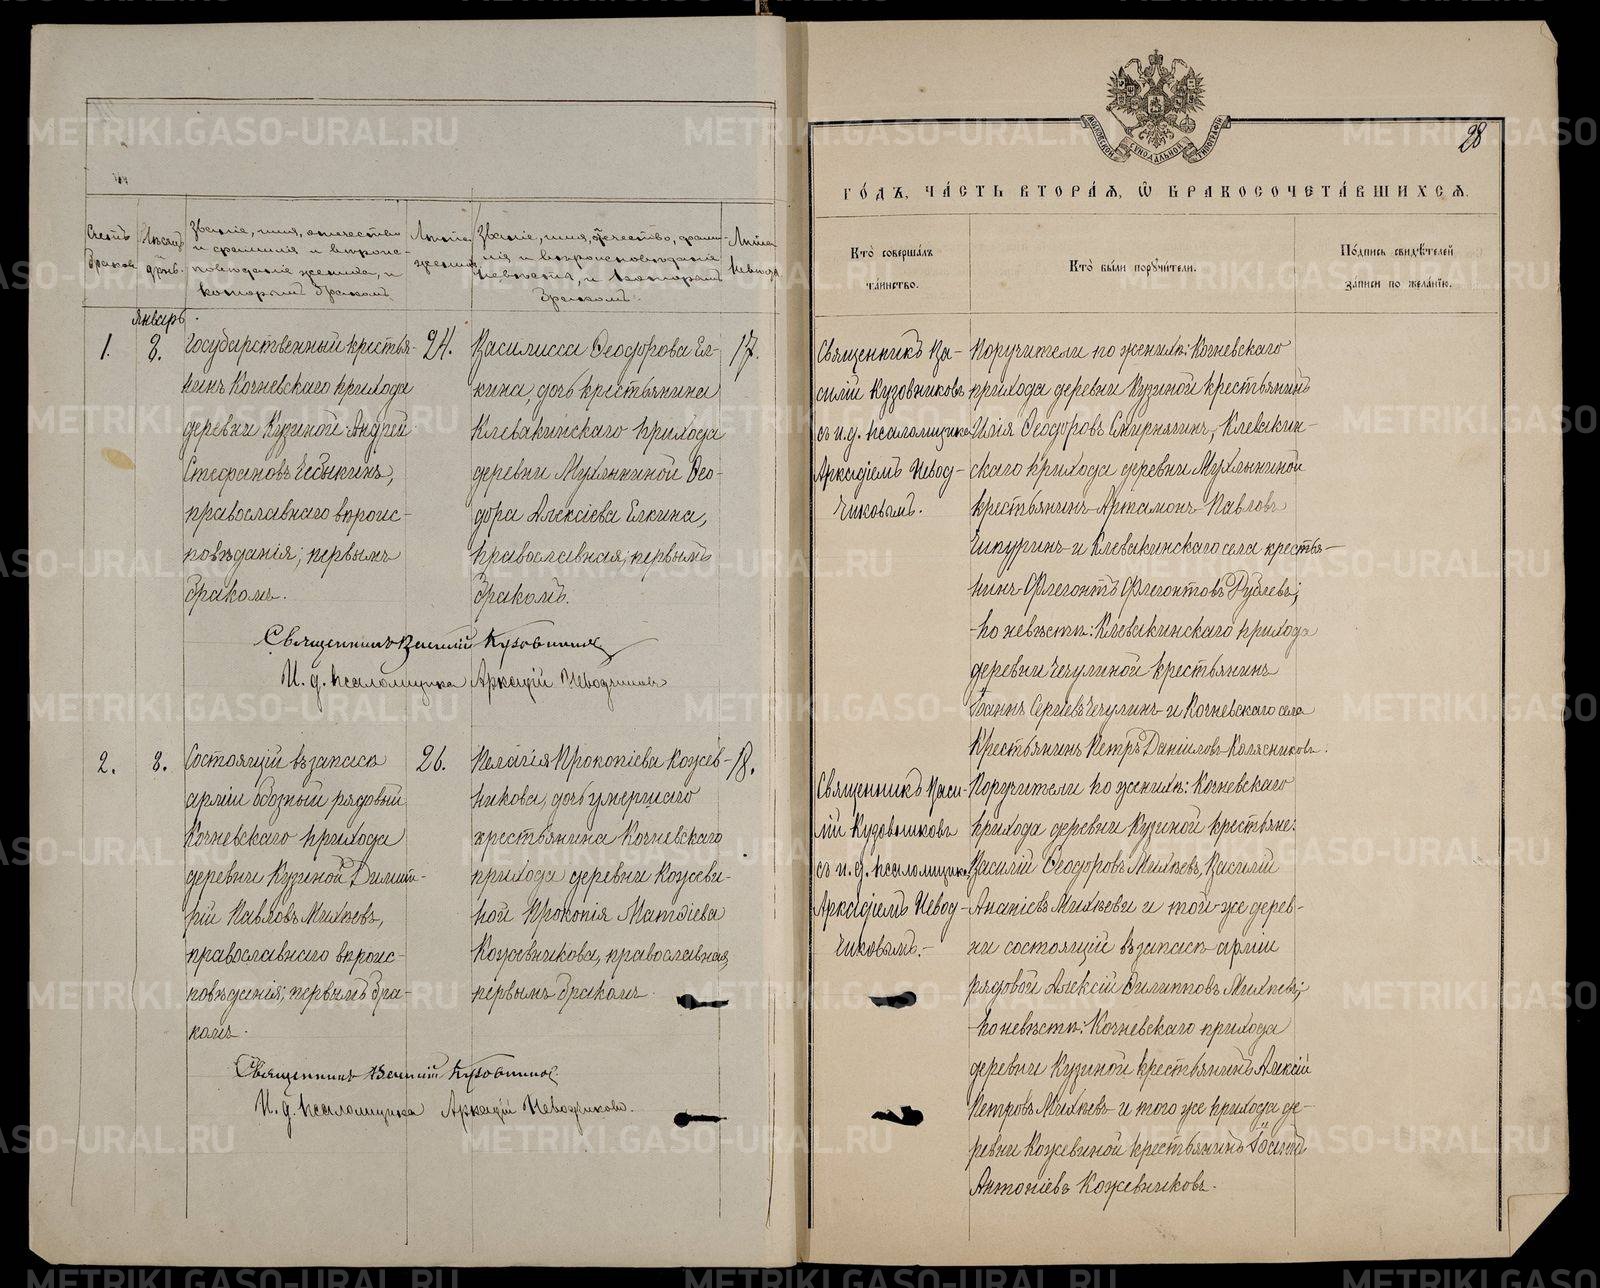 28
МОСКОВСКОЙ СѴНОДАЛЬНОЙ ТИПОГРАФІИ
ГО́ДЪ, ЧА́СТЬ ВТОРА́Я, Ѡ҆ БРАКОСОЧЕТА́ВШИХСЯ.
Счетъ
браковъ
Мѣсяцъ
день.
Званіе, имя, отчество
и фамилія и вѣроис-
повѣданіе жениха, и
которымъ бракомъ.
Лѣта
жениха
Званіе, имя, отчество, фами-
лія и вѣроисповѣданіе
невѣсты, и которымъ
бракомъ.
Лѣта
невѣсты
Январь.
1.
8.
Государственный крестья-
нинъ Кочневскаго прихода
деревни Кузиной Андрей
Стефановъ
православнаго вѣроис-
повѣданія; первымъ
бракомъ.
24.
Василисса Ѳеодорова Ел-
кина, дочь крестьянина
Клевакинскаго прихода
деревни Мухлыниной Ѳео-
дора Алексіева Елкина,
православная; первымъ
бракомъ.
17.
Священникъ Василій Кузовниковъ
И. д. псаломщика Аркадій Неводчиковъ
2.
8.
Состоящій въ запасѣ
арміи обозный рядовый
Кочневскаго прихода
деревни Кузиной Димит-
рій Павловъ Михѣевъ,
православнаго вѣроис-
повѣданія; первымъ бра-
комъ.
26.
Пелагія Прокопіева Кожев-
никова, дочь умершаго
крестьянина Кочневскаго
прихода деревни Кожеви-
ной Прокопія Матѳіева
Кожевникова, православная,
первымъ бракомъ.
18.
Священникъ Василій Кузовниковъ
И. д. псаломщика Аркадій Неводчиковъ.
Кто̀ совершалъ
та́инство.
Кто̀ бы́ли порꙋчи́тели.
По́дпись свидѣ́телей
за́писи по жела́нїю.
Священникъ Ва-
силій Кузовниковъ
съ и. д. псаломщика
Аркадіемъ Невод-
чиковымъ.
Поручители по женихѣ: Кочневскаго
прихода деревни Кузиной крестьянинъ
Илія Ѳеодоровъ Смирнягинъ, Клевакин-
скаго прихода деревни Мухлыниной
крестьянинъ Артамонъ Павловъ
Чипуринъ и Клевакинскаго села крестья-
нинъ Флегонтъ Флегонтовъ Рублевъ;
по невѣстѣ: Клевакинскаго прихода
деревни Чечулиной крестьянинъ
Іоаннъ Сергіевъ Чечулинъ и Кочневскаго села
крестьянинъ Петръ Даніиловъ Колясниковъ.
Священникъ Васи-
лій Кузовниковъ
съ и. д. псаломщика
Аркадіемъ Невод-
чиковымъ.-
Поручители по женихѣ: Кочневскаго
прихода деревни Кузиной крестьяне:
Василій Ѳеодоровъ Михѣевъ, Василій
Ананіевъ Михѣевы и той-же дерев-
ни состоящій въ запасѣ арміи
рядовой Алексій Филипповъ Михѣевъ;
по невѣстѣ: Кочневскаго прихода
деревни Кузиной крестьянинъ Алексій
Петровъ Михѣевъ и того же прихода де-
ревни Кожевиной крестьянинъ
Антоніевъ Кожевниковъ.
METRIKI.GASO-URAL.RU